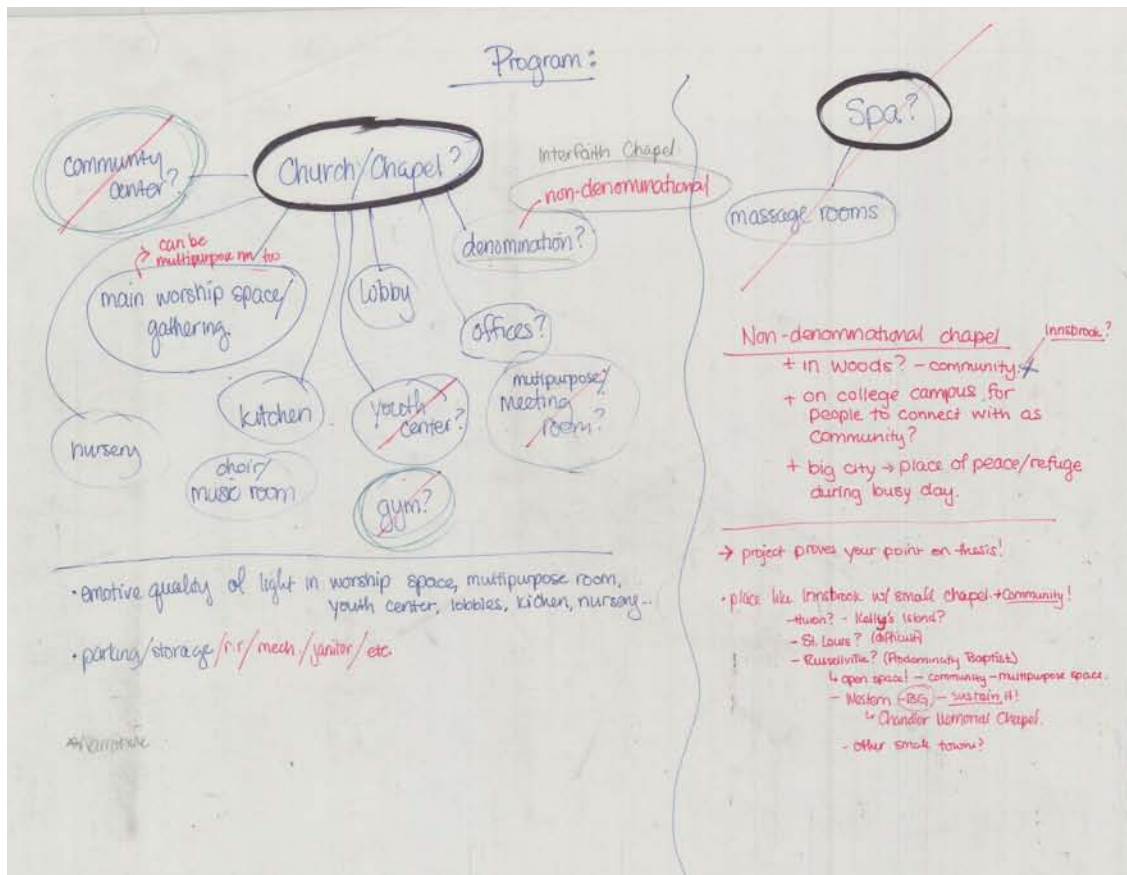 Program:
community
center?
Church/Chapel?
Interfaith Chapel
non-denominational
denomination?
can be
multipurpose rm too
main worship space/
gathering.
lobby
offices?
kitchen
youth
center?
mutipurpose/
Meeting
room?
nursery
choir/
music room
gym?
• emotive quality of light in worship space, multipurpose room,
youth center, lobbies, kichen, nursery...
• parking/storage/r.r/mech./janitor/etc.
Spa?
massage rooms
Non-denominational chapel
Innsbrook?
+ in woods? - community
+ on college campus for
people to connect with as
community?
+ big city → place of peace/refuge
during busy day.
→ project proves your point on thesis!
• place like Innsbrook w/ small chapel + Community!
- Huron? - Kelly's Island?
- St. Louis? (difficult)
- Russellville? (Baptist)
↳ open space! - community - multipurpose space.
- Western - BG - sustain it!
↳ Chandler Memorial Chapel.
- other small towns?